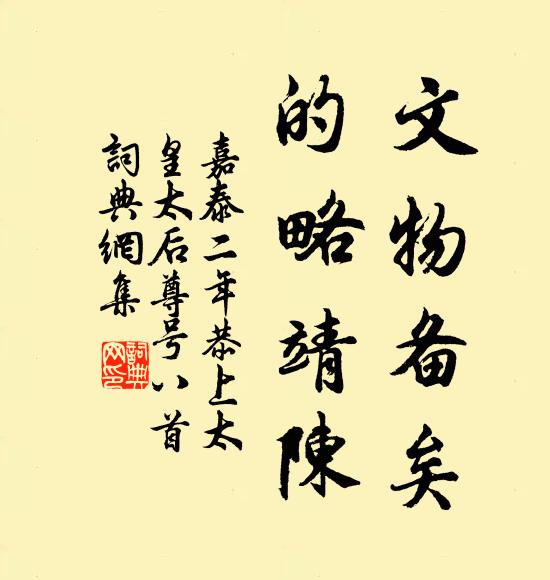 文物备矣
的略靖陳
嘉泰二年恭上太
皇太后尊号八首
詞典網集
詞典
网印